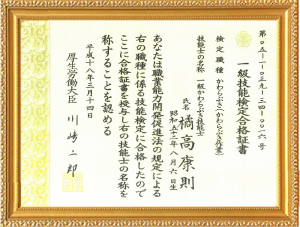 第〇五-一-〇三九-三四-〇〇一六号
一級技能検定合格証書
検定職種 かわらぶき(かわらぶき作業)
技能士の名称 一級かわらぶき技能士
氏名 橘高康則
昭和五十二年八月六日生
あなたは職業能力開発促進法の規定による
右の職種に係る技能検定に合格したので
ここに合格証書を授与し右の技能士の名称を
称することを認める
平成十八年三月十四日
厚生労働大臣 川崎二郎